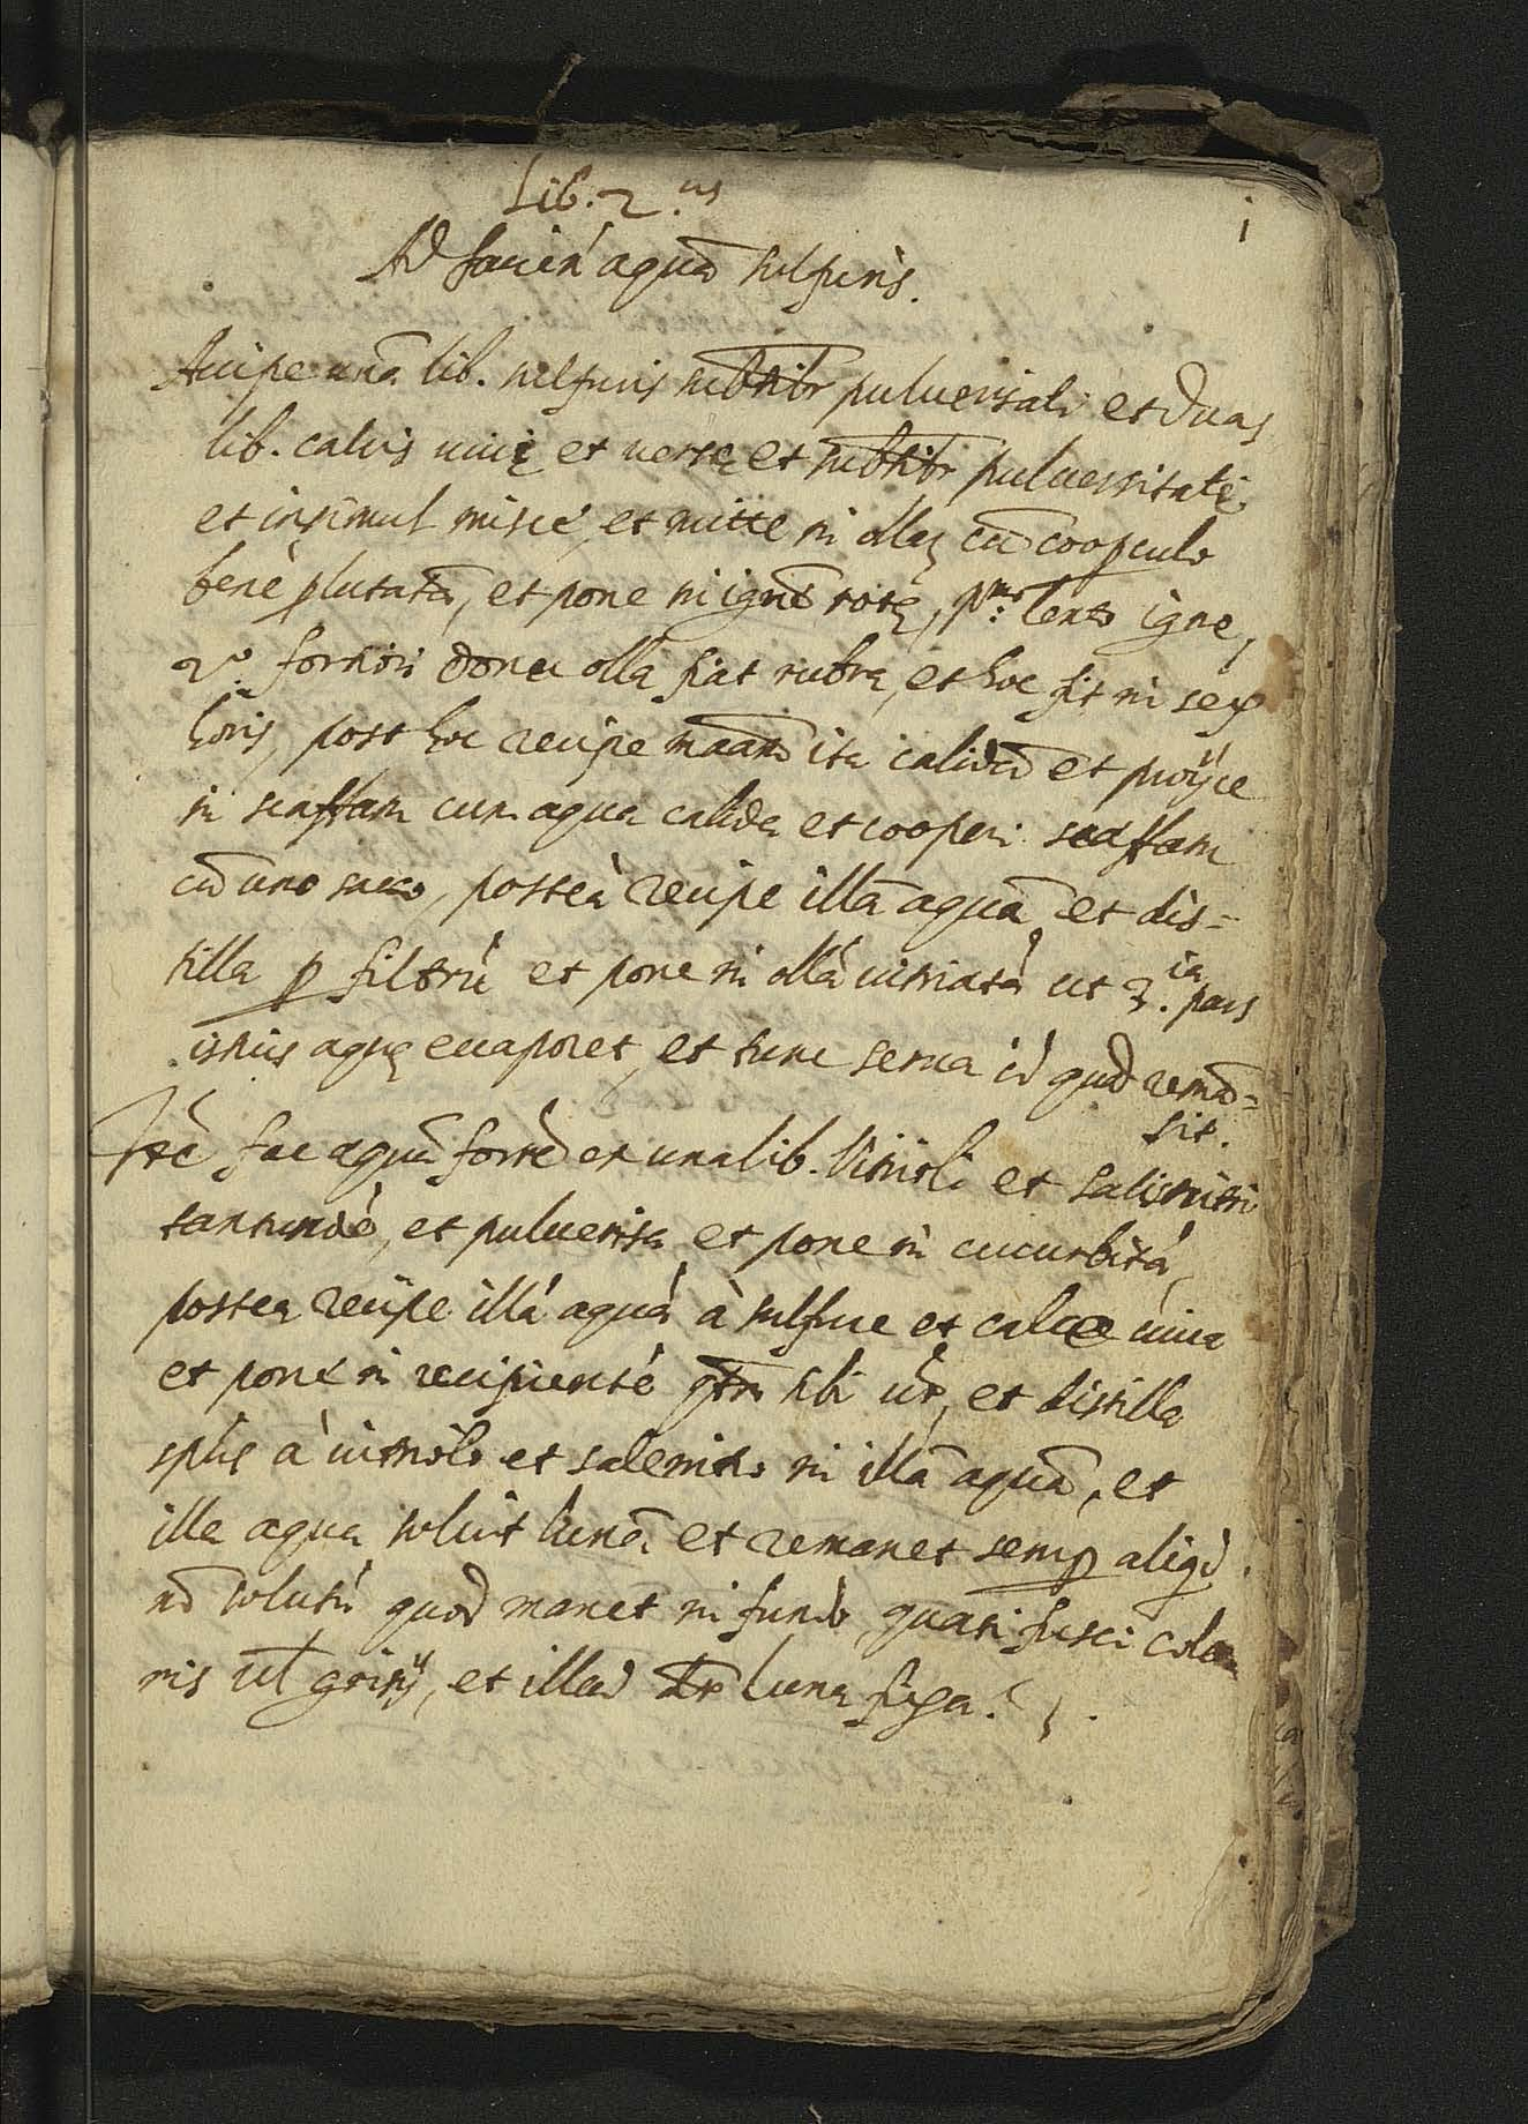 Lib. 2.us
i
Ad facien' aquā sulfuris.
Accipe unā lib. sulfuris subtilr pulverisati et duas
lib. calcis uiuę et uersę et subtilr puluerisatę
et insimul miscé, et mitte in ollaȝ cū coopculo
benè plutatā, et pone in ignē rotę, p.mo lento igne,
2.o fortiori donec olla fiat rubra, et hoc fit in sex
horis, post hoc recipe maām ita calidā et proijce
in scaffam cum aqua calida et cooperi scaffam
cū uno sacco, posteà recipe illā aquā et dis=
tilla p filtrū et pone in ollā uitriatā ut 3.ia pars
istius aquę euaporet, et tunc serua id quod remā=
sit.
Itē fac aquā fortē ex una lib. Vitrioli et salisnitri
tantundē, et pulueriza et pone in cucurbitā,
postea recipe illā aquā à sulfure et calce uiua
et pone in recipientē qtm tibi ūr, et distilla
sptus à uitriolo et salenitro in illā aquā, et
illa aqua soluit lunā et remanet semp aliqd
nō solutū quod manet in fundo quasi fusci colo
ris ul grisij, et illud dr luna fixa.